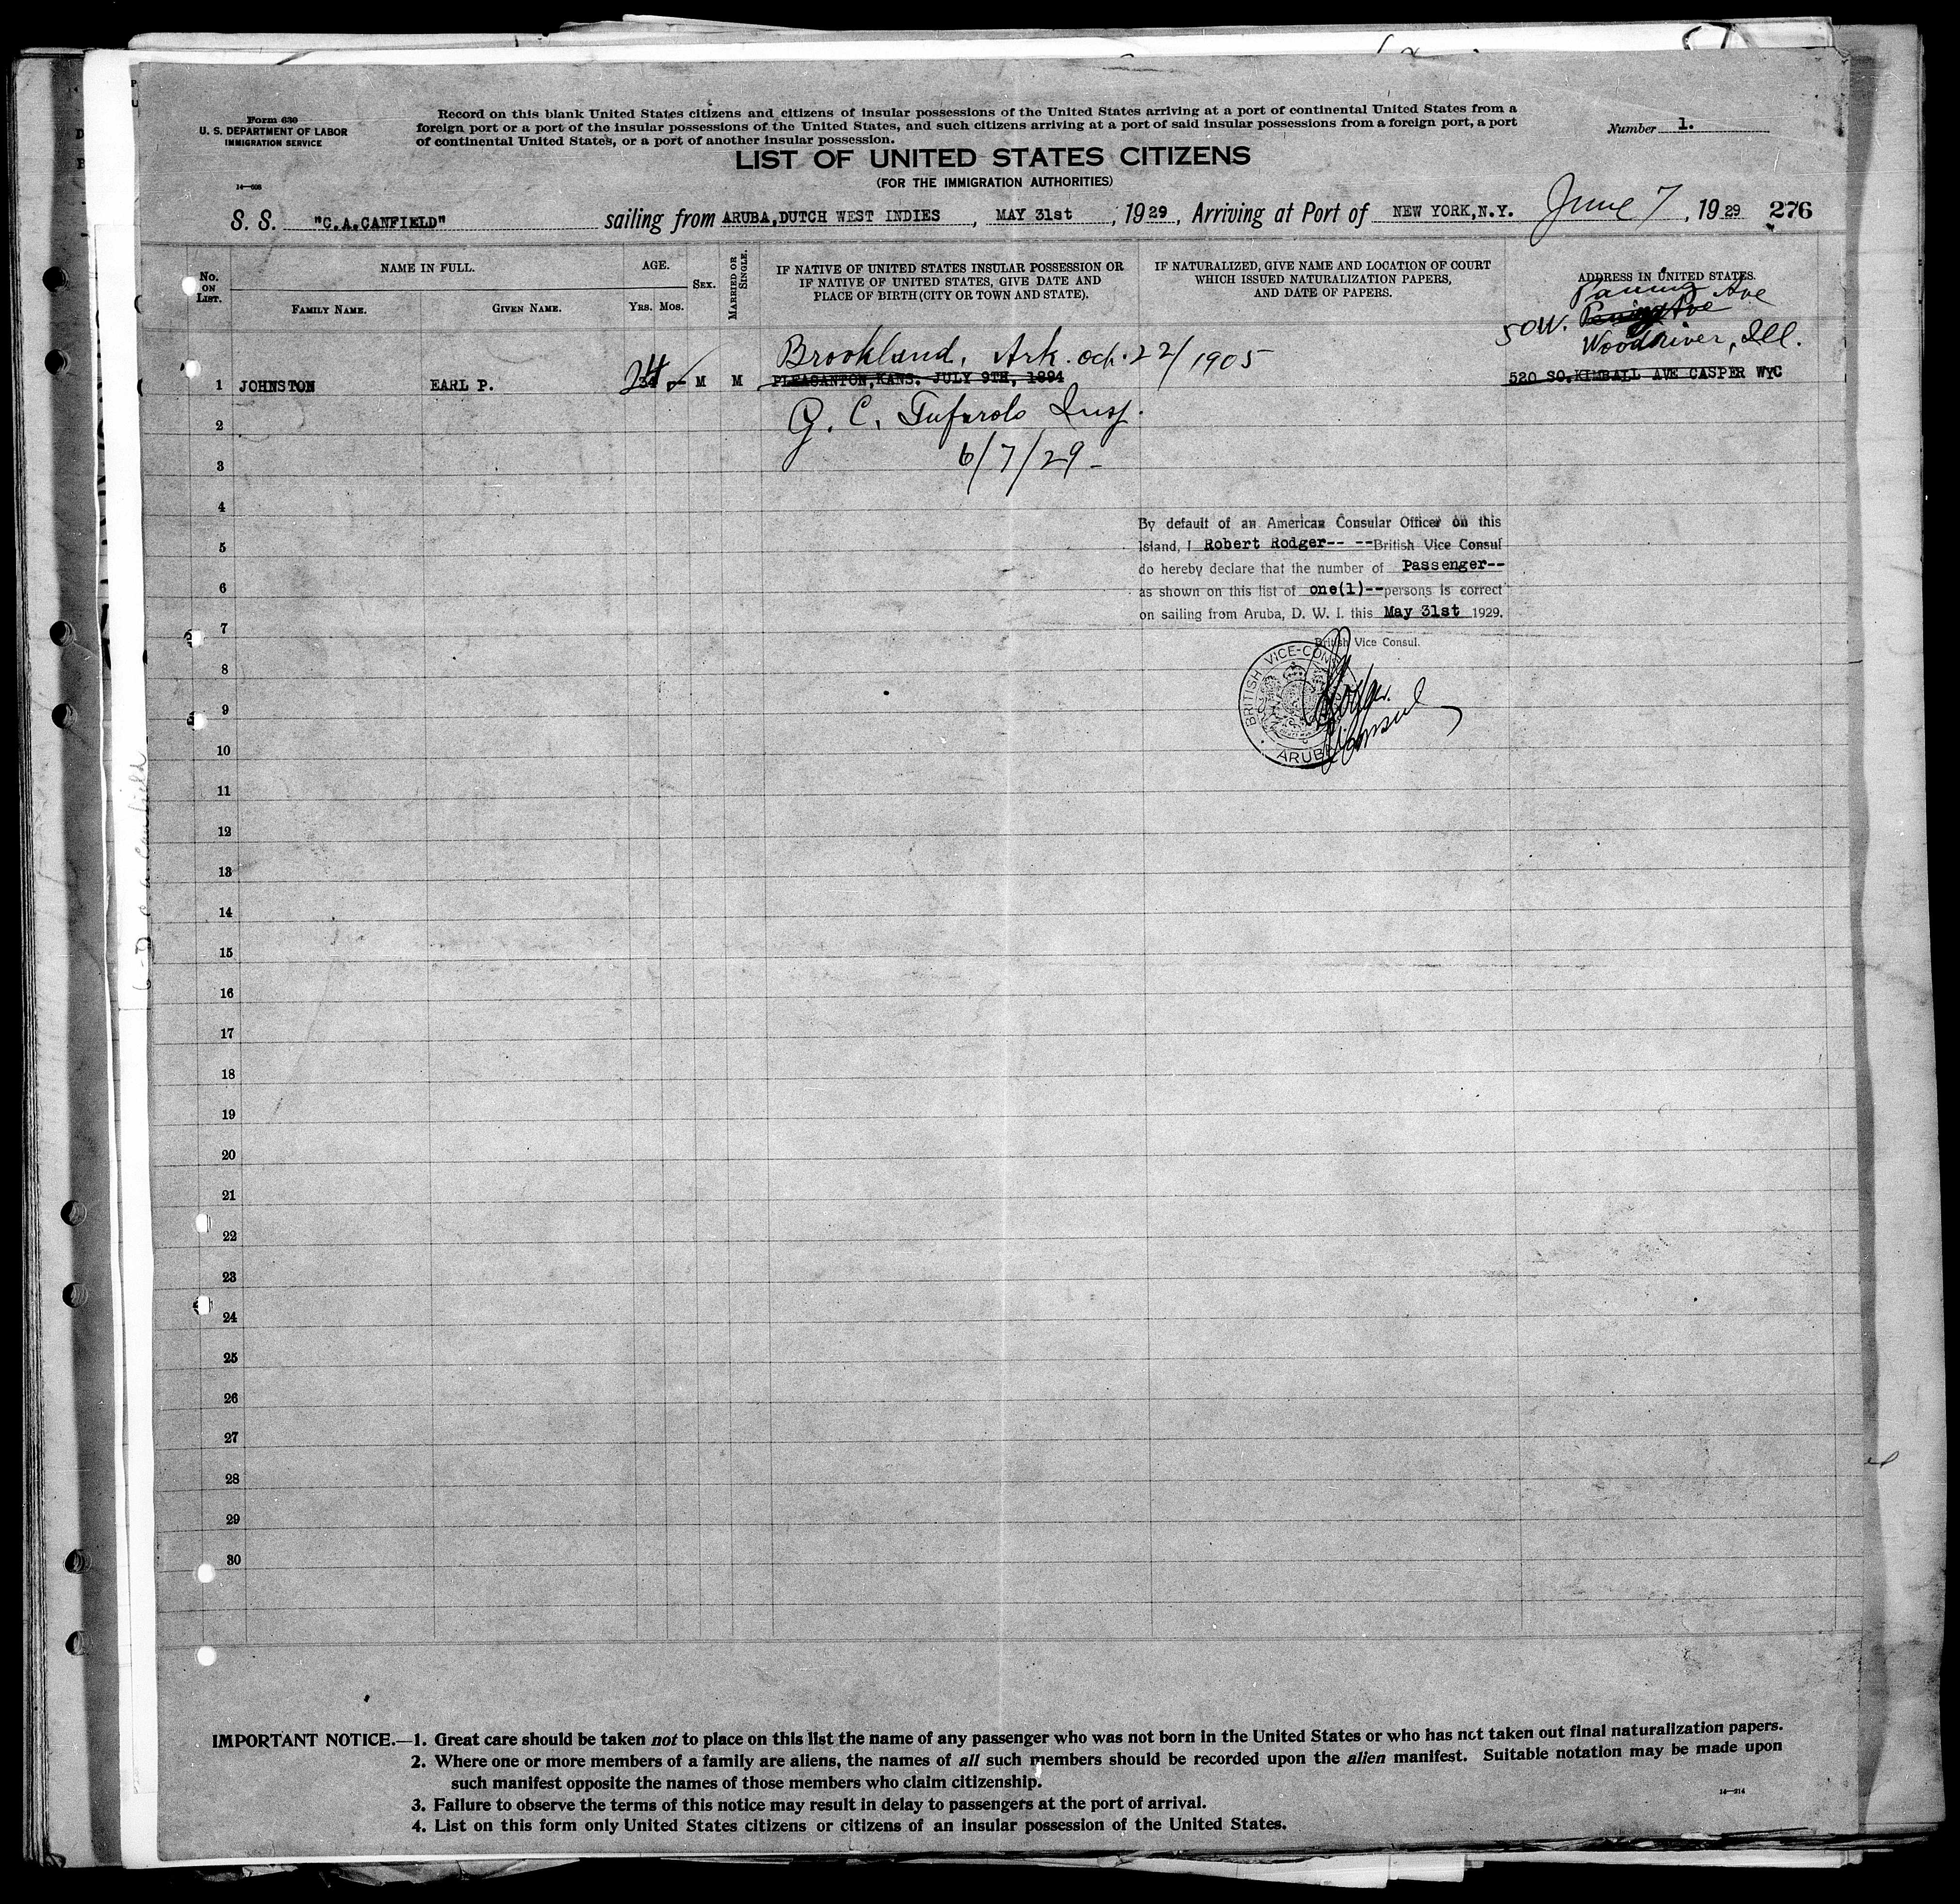 Form 630
U. S. DEPARTMENT OF LABOR
IMMIGRATION SERVICE
Record on this blank United States citizens and citizens of insular possessions of the United States arriving at a port of continental United States from a
foreign port or a port of the insular possessions of the United States, and such citizens arriving at a port of said insular possessions from a foreign port, a port
of continental United States, or a port of another insular possession.
Number 1.
LIST OF UNITED STATES CITIZENS
(FOR THE IMMIGRATION AUTHORITIES)
S. S. "C.A.CANFIELD" sailing from ARUBA,DUTCH WEST INDIES, MAY 31st, 1929, Arriving at Port of NEW YORK,N.Y. June 7, 1929 276
No. ON LIST.
NAME IN FULL.
FAMILY NAME.
GIVEN NAME.
AGE.
Yrs. Mos.
SEX.
MARRIED OR SINGLE.
IF NATIVE OF UNITED STATES INSULAR POSSESSION OR
IF NATIVE OF UNITED STATES, GIVE DATE AND
PLACE OF BIRTH (CITY OR TOWN AND STATE).
IF NATURALIZED, GIVE NAME AND LOCATION OF COURT
WHICH ISSUED NATURALIZATION PAPERS,
AND DATE OF PAPERS.
ADDRESS IN UNITED STATES.
50W. Ave
Woodriver, Ill.
Brookland, Ark. Oct. 22/1905
1 JOHNSTON EARL P. 24 M M PLEASANTON,KANS. JULY 9TH, 1894 520 SO.KIMBALL AVE CASPER WYC
2 G. C. Insp.
3 6/7/29
4
By default of an American Consular Officer on this
5
Island, I Robert Rodger-- --British Vice Consul
do hereby declare that the number of Passenger--
6
as shown on this list of one(1)--persons is correct
on sailing from Aruba, D. W. I. this May 31st 1929.
7
British Vice Consul.
BRITISH VICE-CONS
ARUBA
8
9
10
11
12
13
14
15
16
17
18
19
20
21
22
23
24
25
26
27
28
29
30
IMPORTANT NOTICE.—1. Great care should be taken not to place on this list the name of any passenger who was not born in the United States or who has not taken out final naturalization papers.
2. Where one or more members of a family are aliens, the names of all such members should be recorded upon the alien manifest. Suitable notation may be made upon
such manifest opposite the names of those members who claim citizenship.
3. Failure to observe the terms of this notice may result in delay to passengers at the port of arrival.
4. List on this form only United States citizens or citizens of an insular possession of the United States.
14—214